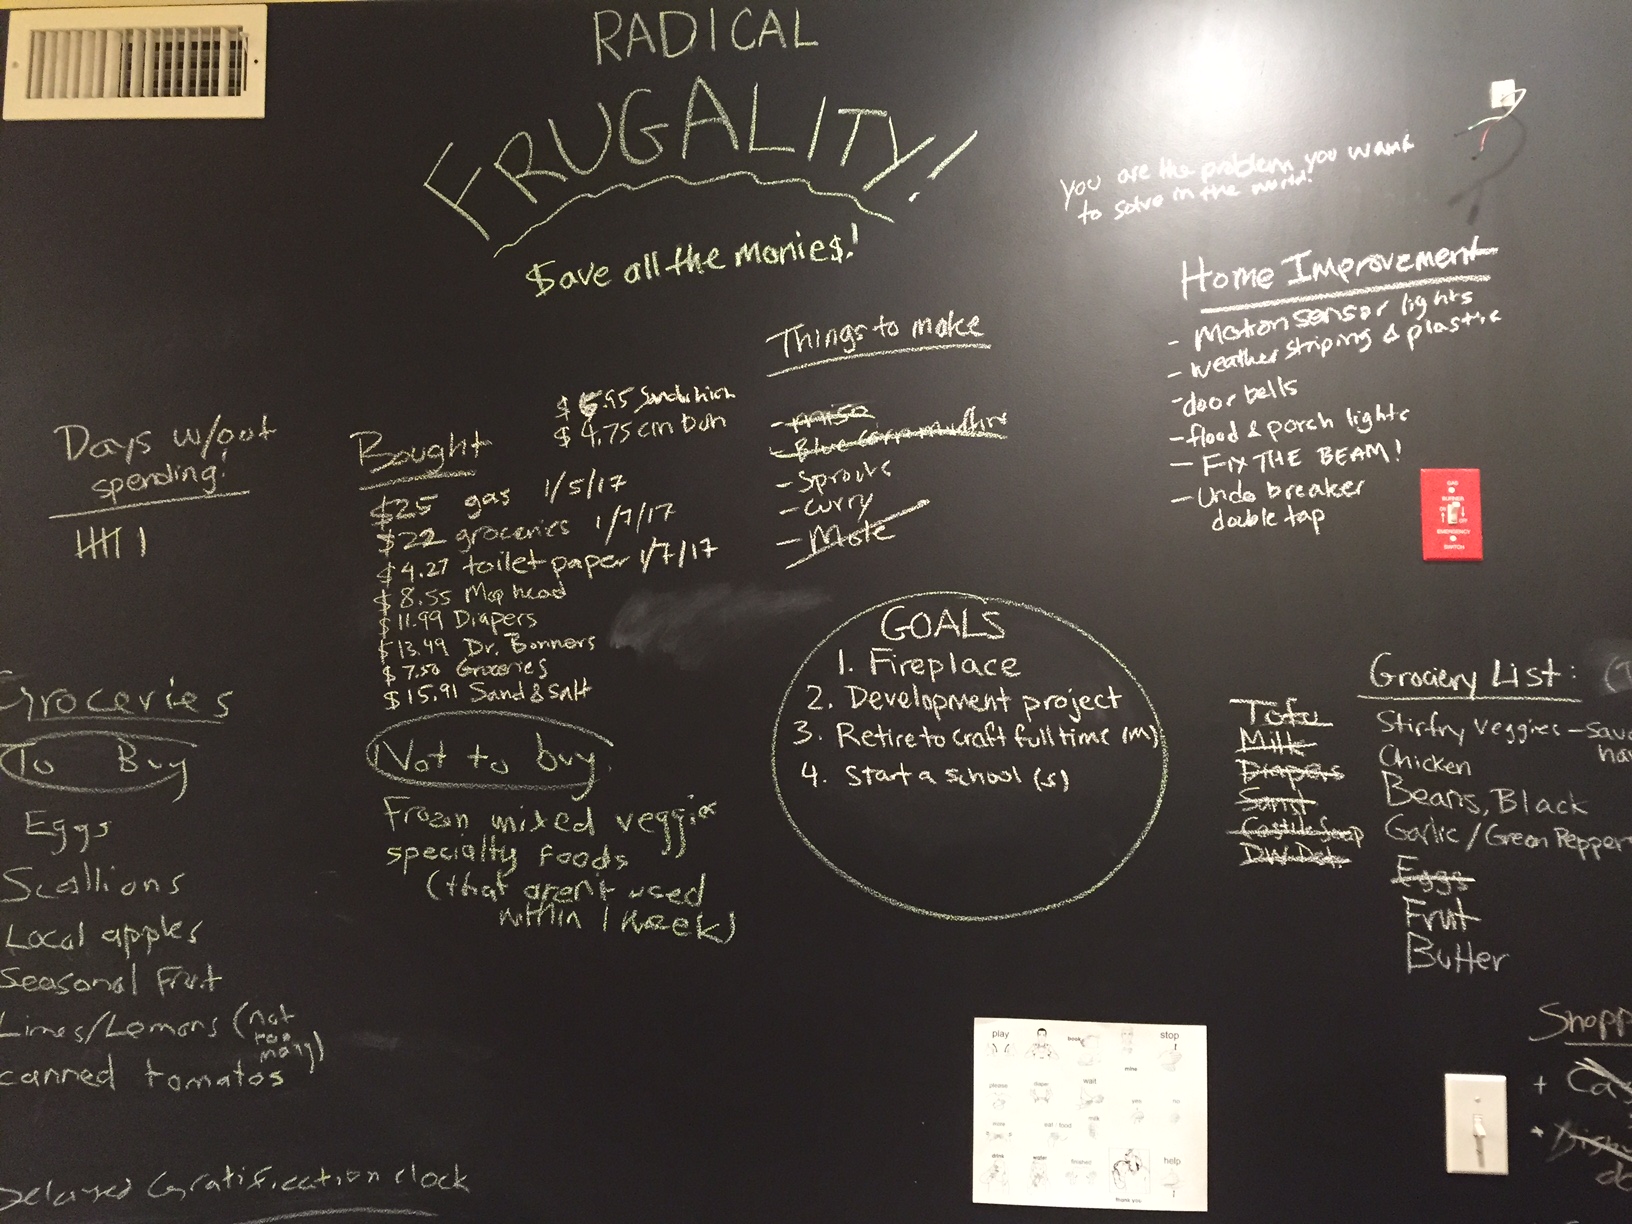 RADICAL
FRUGALITY!
$ave all the monie$!
You are the problem you want
to solve in the world!
Home Improvement
- Motion sensor lights
- weather striping & plastic
- door bells
- flood & porch lights
- FIX THE BEAM!
- Undo breaker
double tap
Things to make
- miso
- Blue corn muffins
- Sprouts
- Curry
- Mole
Days w/out
spending!
Bought
$ 6.95 Sandwhich
$ 4.75 cin bun
$25 gas 1/5/17
$22 groceries 1/7/17
$4.27 toilet paper 1/7/17
$8.55 Mop head
$11.99 Diapers
$13.49 Dr. Bonners
$7.50 Groceries
$15.91 Sand & salt
Groceries
To Buy
Eggs
Scallions
Local apples
Seasonal Fruit
Limes/Lemons (not
too
many)
canned tomatos
Delayed Gratification clock
Not to buy
Frozen mixed veggies
specialty foods
(that aren't used
within 1 week)
GOALS
1. Fireplace
2. Development project
3. Retire to craft full time (m)
4. Start a school (s)
Tofu
Milk
Diapers
Sand
Castile Soap
DW Det.
Grociery List:
Stirfry veggies -
Chicken
Beans, Black
Garlic / Green Pepper
Eggs
Fruit
Butter
Shopp
GAS
BURNER
ON OFF
EMERGENCY
SWITCH
play
book
stop
mine
please
diaper
wait
yes
no
more
eat food
milk
drink
water
finished
help
thank you